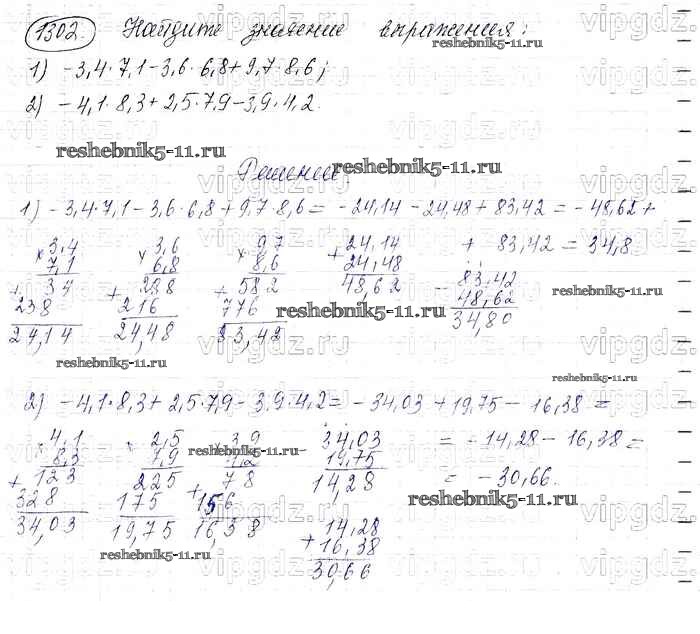 1302. Найдите значение выражения:
1) -3,4·7,1-3,6·6,8+9,7·8,6;
2) -4,1·8,3+2,5·7,9-3,9·4,2.
Решение
1) -3,4·7,1-3,6·6,8+9,7·8,6= -24,14-24,48+83,42=-48,62+
+ 83,42 = 34,8
× 3,4
7,1
+ 34
238
24,14
× 3,6
6,8
+ 288
216
24,48
× 9,7
8,6
+ 582
776
83,42
+ 24,14
24,48
48,62
- 83,42
48,62
34,80
2) -4,1·8,3+2,5·7,9-3,9·4,2=-34,03+19,75-16,38=
= -14,28-16,38=
= -30,66.
× 4,1
8,3
+ 123
328
34,03
× 2,5
7,9
225
175
19,75
× 3,9
4,2
+ 78
156
16,38
34,03
19,75
14,28
+ 14,28
16,38
30,66
reshebnik5-11.ru
reshebnik5-11.ru
reshebnik5-11.ru
reshebnik5-11.ru
reshebnik5-11.ru
reshebnik5-11.ru
reshebnik5-11.ru
reshebnik5-11.ru
reshebnik5-11.ru
reshebnik5-11.ru
vipgdz.ru
vipgdz.ru
vipgdz.ru